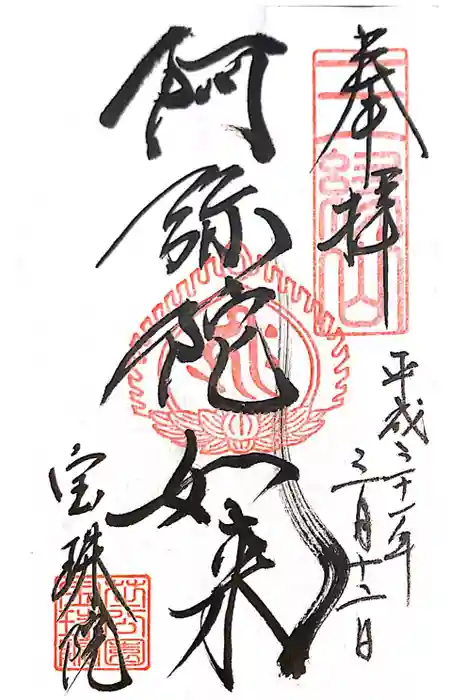 奉拝
三縁山
平成三十一年
三月十二日
阿弥陀如来
宝珠院